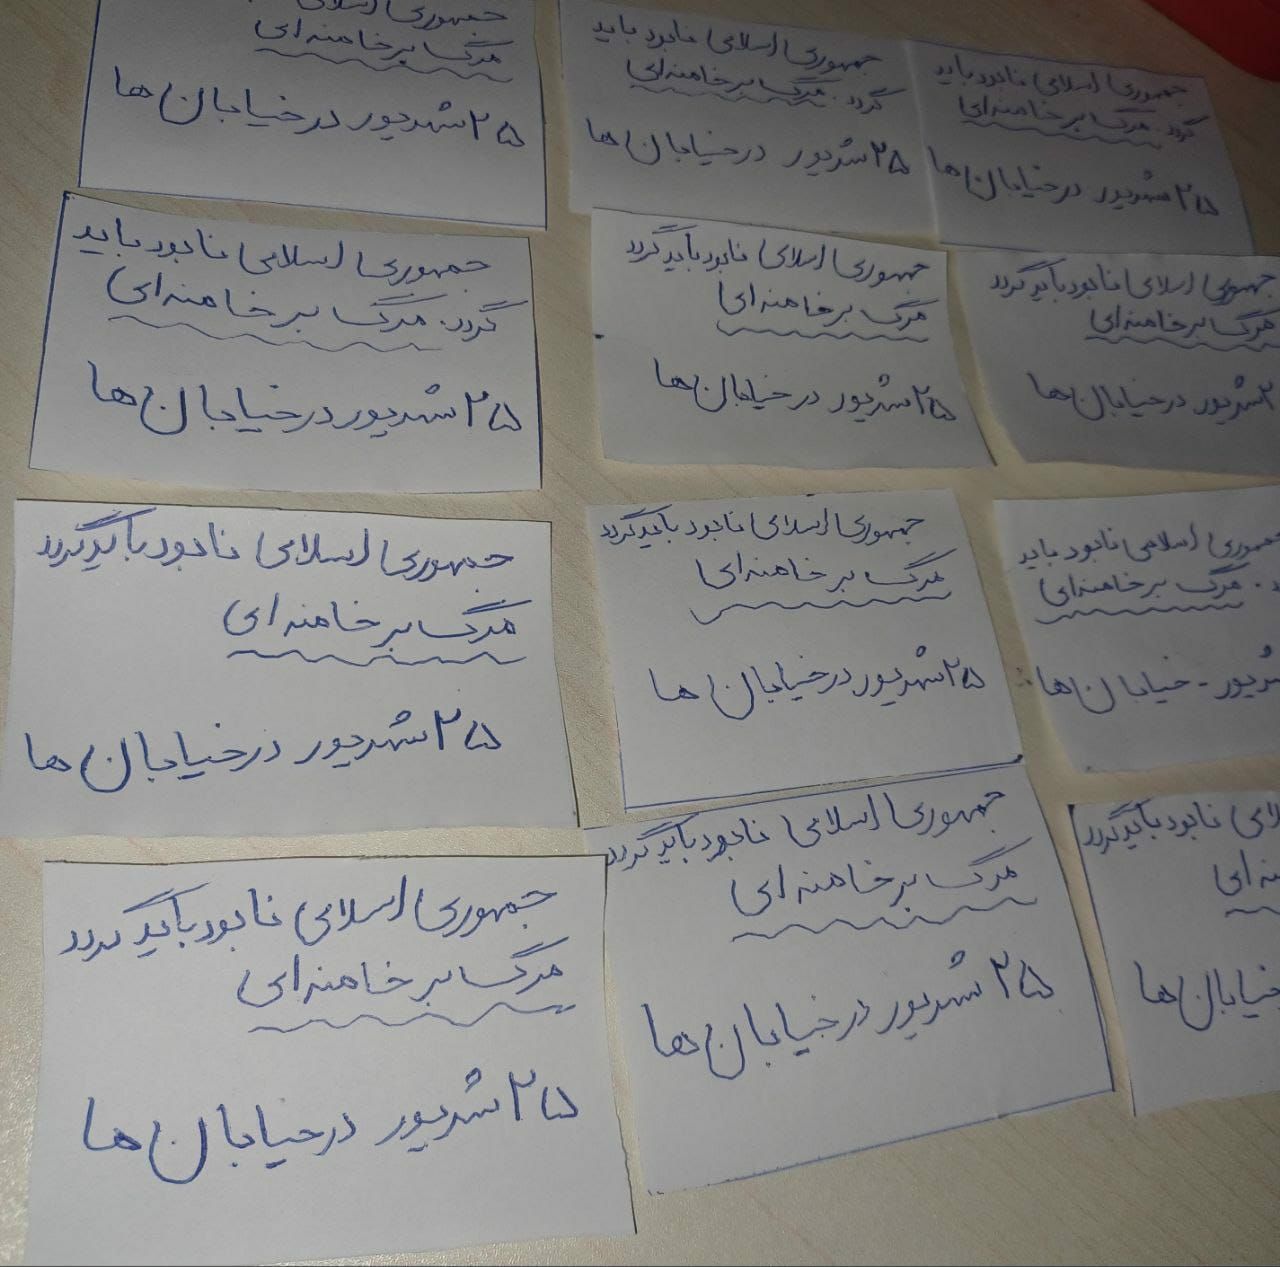 جمهوری اسلامی
مرگ بر خامنه‌ای
۲۵ شهریور در خیابان‌ها
جمهوری اسلامی نابود باید
گردد. مرگ بر خامنه‌ای
۲۵ شهریور در خیابان‌ها
جمهوری اسلامی نابود باید
گردد. مرگ بر خامنه‌ای
۲۵ شهریور در خیابان‌ها
جمهوری اسلامی نابود باید
گردد. مرگ بر خامنه‌ای
۲۵ شهریور در خیابان‌ها
جمهوری اسلامی نابود باید گردد
مرگ بر خامنه‌ای
۲۵ شهریور در خیابان‌ها
جمهوری اسلامی نابود باید گردد
مرگ بر خامنه‌ای
شهریور در خیابان‌ها
جمهوری اسلامی نابود باید گردد
مرگ بر خامنه‌ای
۲۵ شهریور در خیابان‌ها
جمهوری اسلامی نابود باید گردد
مرگ بر خامنه‌ای
۲۵ شهریور در خیابان‌ها
جمهوری اسلامی نابود باید
مرگ بر خامنه‌ای
- خیابان‌ها
جمهوری اسلامی نابود باید گردد
مرگ بر خامنه‌ای
۲۵ شهریور در خیابان‌ها
جمهوری اسلامی نابود باید گردد
مرگ بر خامنه‌ای
۲۵ شهریور در خیابان‌ها
نابود باید گردد
خیابان‌ها